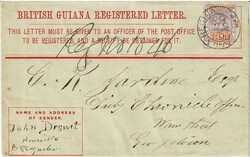 BRITISH GUIANA REGISTERED LETTER.
THIS LETTER MUST BE GIVEN TO AN OFFICER OF THE POST OFFICE
TO BE REGISTERED, AND A RECEIPT OBTAINED FOR IT.
Registered
C. K. Jardine Esq
Daily Chronicle Office
Main Street
Georgetown
NAME AND ADDRESS
OF SENDER.
John